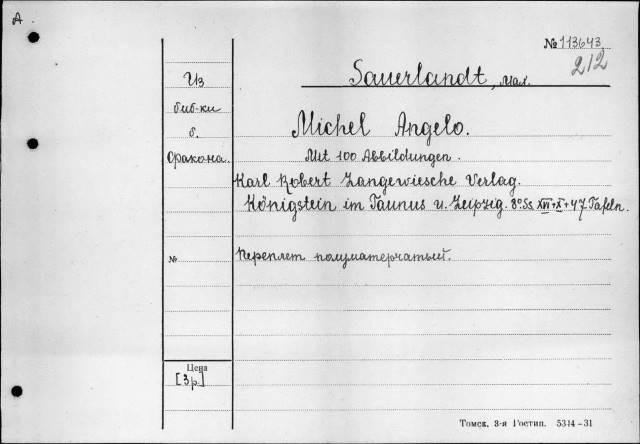 A
№ 113643
212
Sauerlandt, Max.
Из
биб-ки
б.
Фракона.
Michel Angelo.
Mit 100 Abbildungen.
Karl Robert Langewiesche Verlag.
Königstein im Taunus u. Leipzig. 8° Ss XVI+X+47 Tafeln.
№
Переплет полуматерчатый.
Цена
[3 р.]
Томск. 3-я Гостип. 5314-31